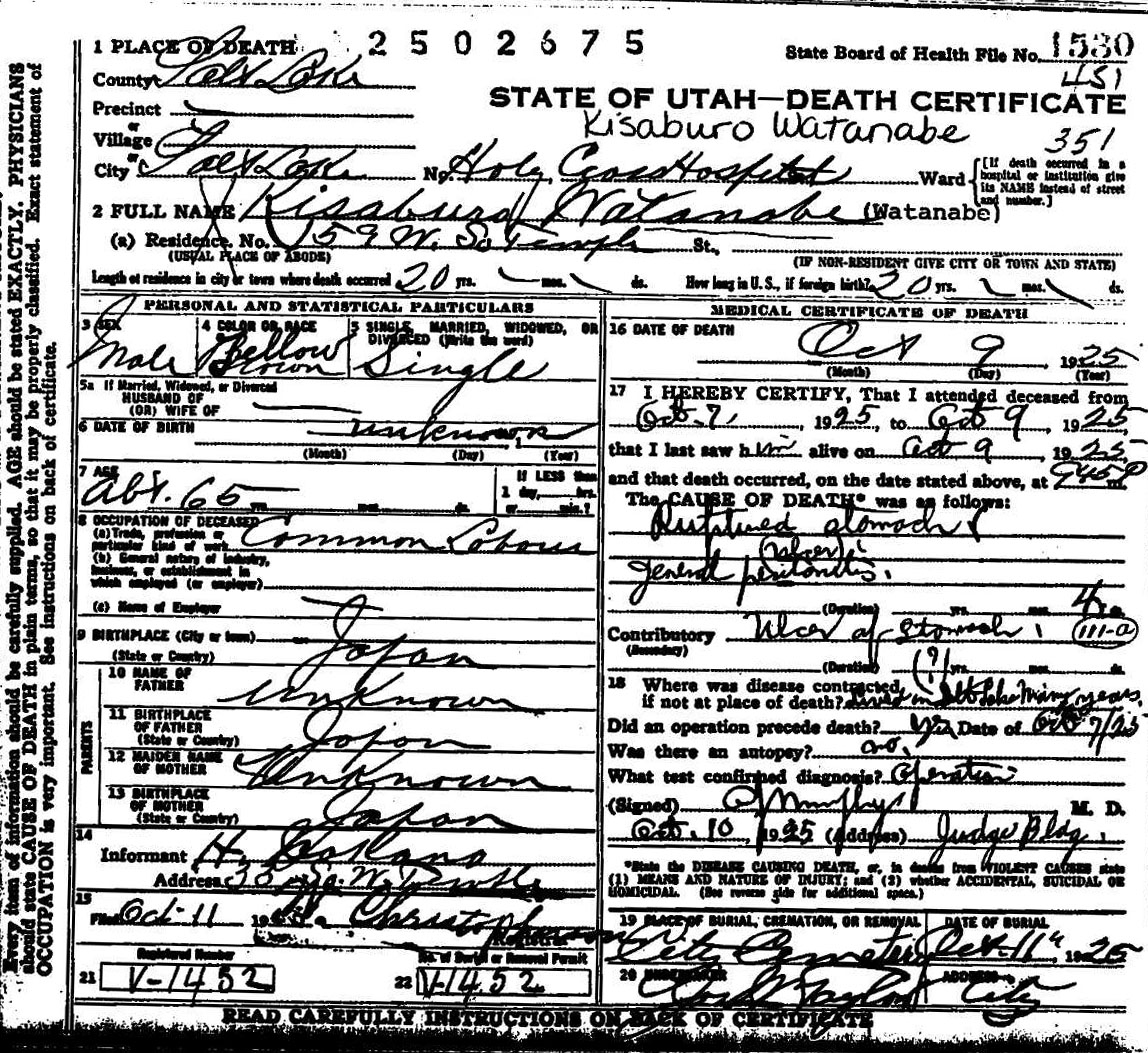 Every item of information should be carefully supplied. AGE should be stated EXACTLY. PHYSICIANS
should state CAUSE OF DEATH in plain terms, so that it may be properly classified. Exact statement of
OCCUPATION is very important. See instructions on back of certificate.
1 PLACE OF DEATH 2502675 State Board of Health File No. 1530
County Salt Lake 451
STATE OF UTAH—DEATH CERTIFICATE
Precinct
or
Kisaburo Watanabe
Village 351
or
City Salt Lake No. Holy Cross Hospital Ward [If death occurred in a hospital or institution give its NAME instead of street and number.]
2 FULL NAME Kisaburo Watanabe (Watanabe)
(a) Residence. No. 159 W. So. Temple St.,
(USUAL PLACE OF ABODE) (IF NON-RESIDENT GIVE CITY OR TOWN AND STATE)
Length of residence in city or town where death occurred 20 yrs. mos. ds. How long in U. S., if foreign birth? 20 yrs. mos. ds.
PERSONAL AND STATISTICAL PARTICULARS
3 SEX
4 COLOR OR RACE
5 SINGLE, MARRIED, WIDOWED, OR DIVORCED (Write the word)
Male Brown Single
5a If Married, Widowed, or Divorced
HUSBAND OF
(OR) WIFE OF
6 DATE OF BIRTH unknown
(Month) (Day) (Year)
7 AGE If LESS than
Abt. 65 yrs. mos. ds. 1 day, hrs.
or min.?
8 OCCUPATION OF DECEASED
(a) Trade, profession or
particular kind of work Common
(b) General nature of industry,
business, or establishment in
which employed (or employer)
(c) Name of Employer
9 BIRTHPLACE (City or town)
(State or Country) Japan
PARENTS
10 NAME OF
FATHER Unknown
11 BIRTHPLACE
OF FATHER
(State or Country) Japan
12 MAIDEN NAME
OF MOTHER Unknown
13 BIRTHPLACE
OF MOTHER
(State or Country) Japan
14
Informant H.
Address
15
Filed Oct-11 192
Registrar
Registered Number
21 V-1452
No. of Burial or Removal Permit
22 V-1452
MEDICAL CERTIFICATE OF DEATH
16 DATE OF DEATH
Oct 9 1925
(Month) (Day) (Year)
17 I HEREBY CERTIFY, That I attended deceased from
Oct. 7, 1925, to Oct 9 1925
that I last saw him alive on Oct 9 1925
and that death occurred, on the date stated above, at 945P m.
The CAUSE OF DEATH* was as follows:
Ruptured stomach
Ulcer
General peritonitis.
(Duration) yrs. mos. 4 ds.
Contributory Ulcer of Stomach 111-a
(Secondary)
(Duration) (?) yrs. mos. ds.
18 Where was disease contracted
if not at place of death? Lived in Salt Lake Many years.
Did an operation precede death? yes Date of Oct 7/25
Was there an autopsy? no.
What test confirmed diagnosis? Operation
(Signed) Murphy M. D.
Oct. 10 1925 (Address) Judge Bldg.
*State the DISEASE CAUSING DEATH, or, in deaths from VIOLENT CAUSES state
(1) MEANS AND NATURE OF INJURY; and (2) whether ACCIDENTAL, SUICIDAL OR
HOMICIDAL. (See reverse side for additional space.)
19 PLACE OF BURIAL, CREMATION, OR REMOVAL DATE OF BURIAL
City Cemetery Oct-11th, 1925
20 UNDERTAKER ADDRESS
Taylor City
READ CAREFULLY INSTRUCTIONS ON BACK OF CERTIFICATE